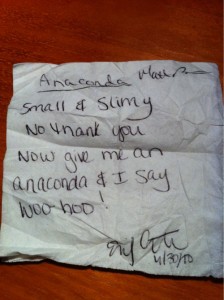 Anaconda
Small & Slimy
No thank you
Now give me an
anaconda & I say
woo-hoo!
4/30/10